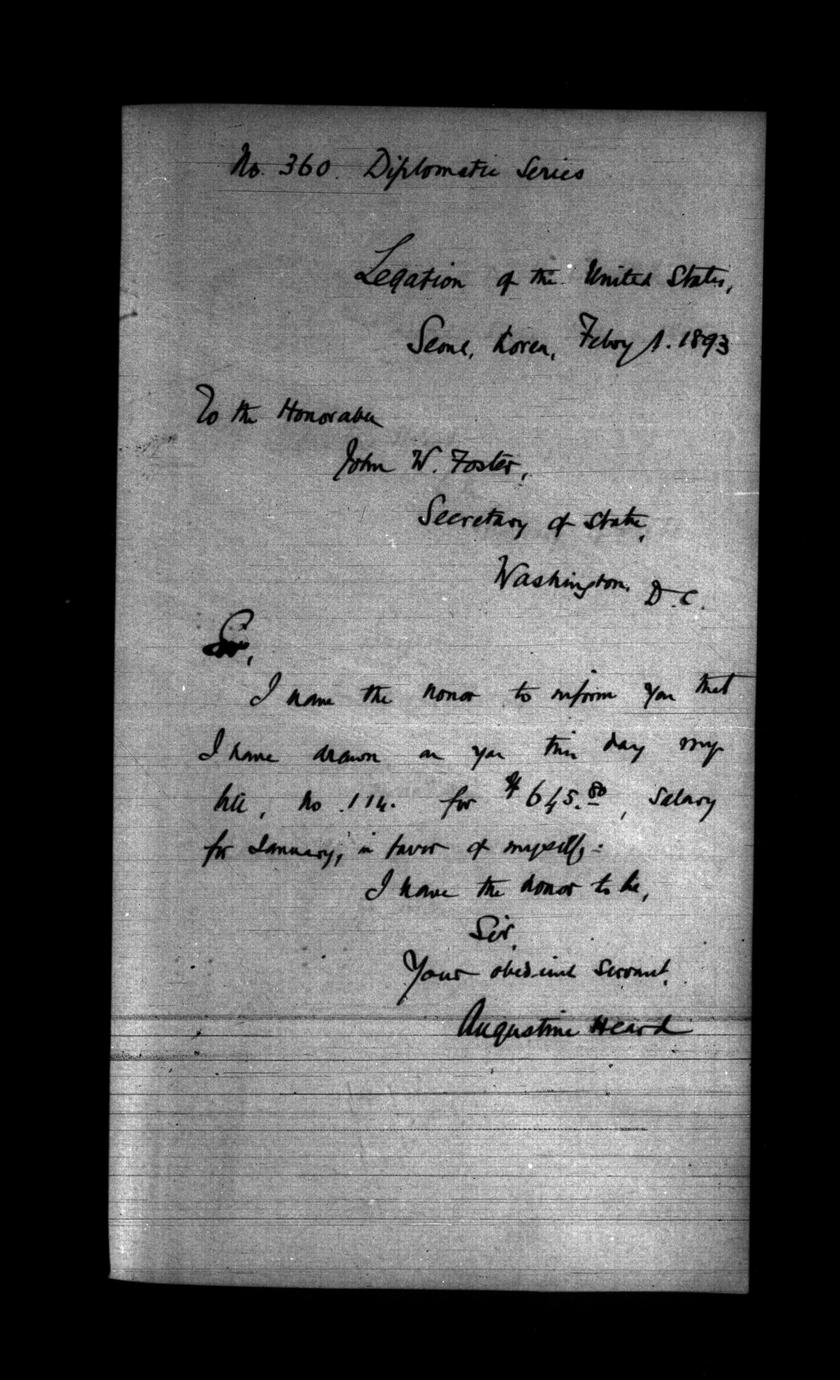 No. 360. Diplomatic Series
Legation of the United States,
Seoul, Korea, Feby 1. 1893
To the Honorable
John W. Foster,
Secretary of State,
Washington, D.C.
Sir,
I have the honor to inform you that
I have drawn on you this day my
bill, No. 114. for $645.80, salary
for January, in favor of myself.
I have the honor to be,
Sir,
Your obedient servant,
Augustine Heard